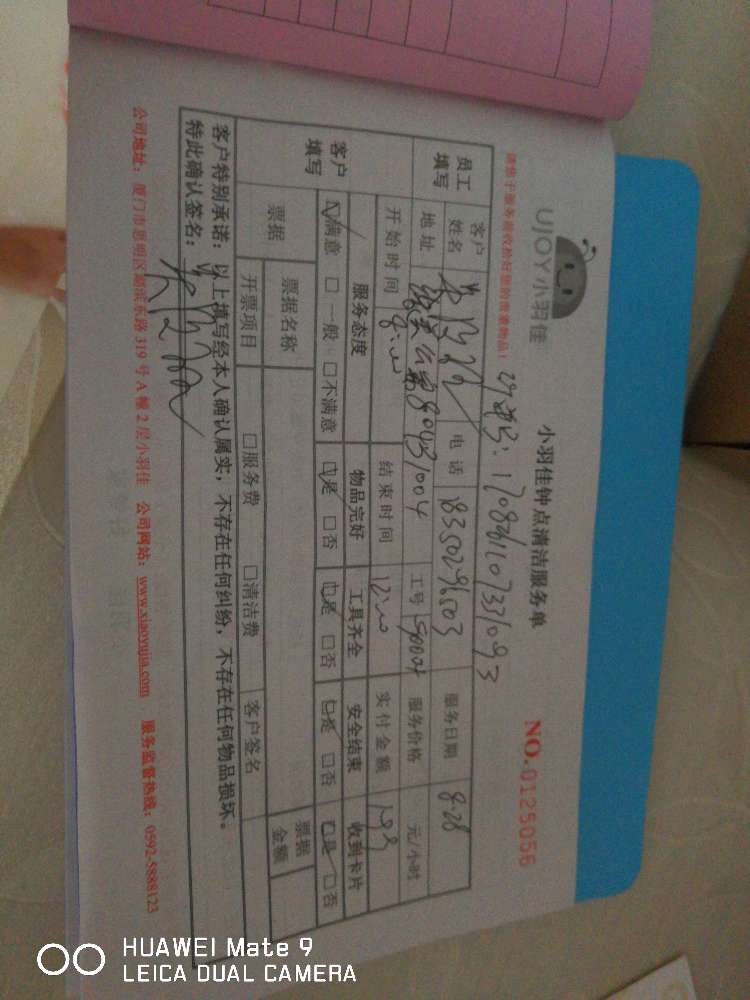 UJOY小羽佳
小羽佳钟点清洁服务单
NO.0125056
请您于服务前收拾好您的贵重物品！
170861107331093
员工填写
客户姓名
电话 18350296503
服务日期 8.28
地址
工号
服务价格 元/小时
开始时间 8:00
结束时间 12:00
实付金额
客户填写
服务态度 物品完好 工具齐全 安全结束 收到卡片
☑满意 □一般 □不满意 ☑是 □否 ☑是 □否 ☑是 □否 ☑是 □否
票据 票据名称 票据金额
开票项目 □服务费 □清洁费 客户签名
客户特别承诺：以上填写经本人确认属实，不存在任何纠纷，不存在任何物品损坏。
特此确认签名：
公司地址：厦门市思明区湖滨东路319号A幢2层小羽佳 公司网站：www.xiaoyujia.com 服务监督热线：0592-5888123
HUAWEI Mate 9
LEICA DUAL CAMERA